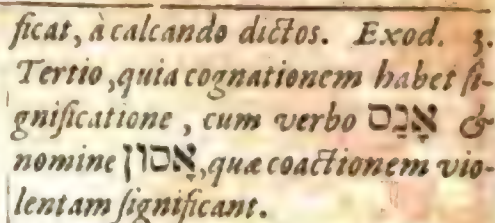 ficat, à calcando dictos. Exod. 3.
Tertio, quia cognationem habet ſi-
gnificatione, cum verbo אָנַס &
nomine אָסוֹן, quæ coactionem vio-
lentam ſignificant.